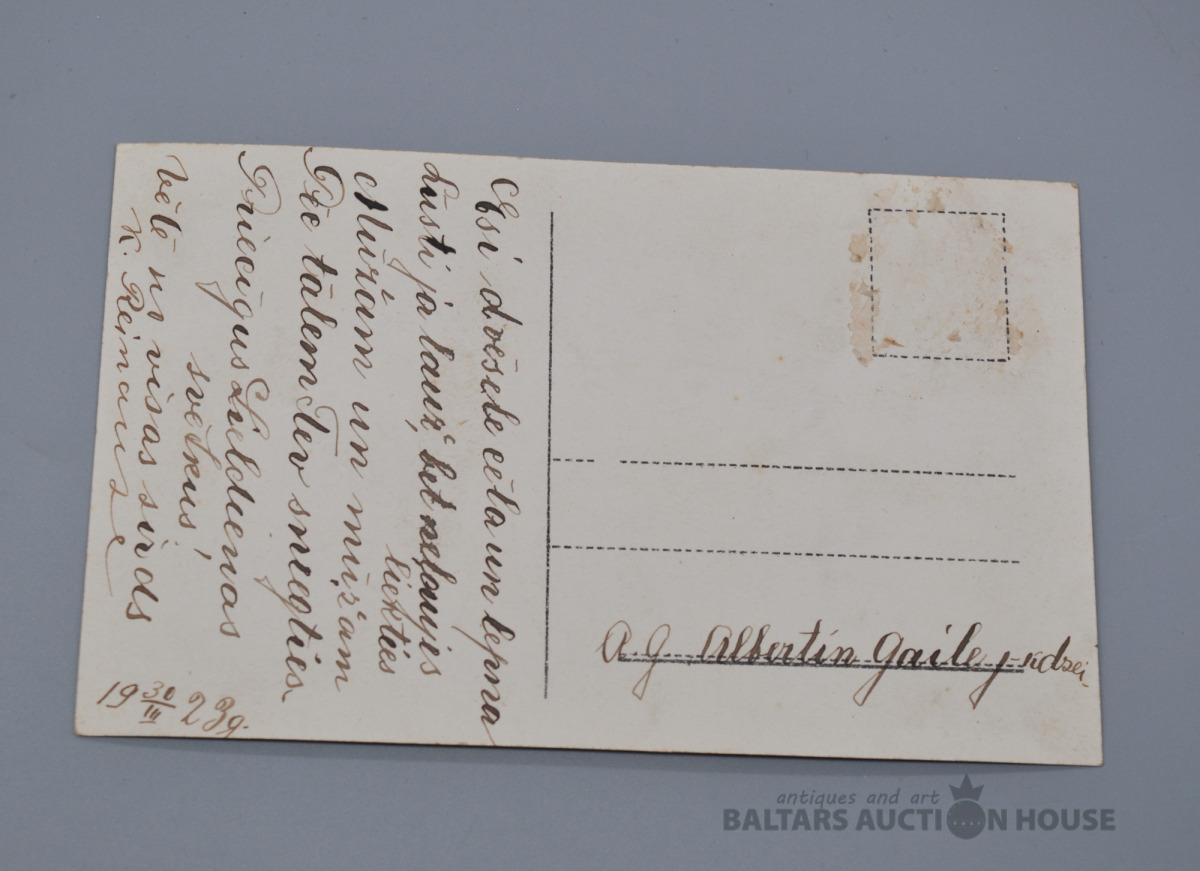 Esi dvēsele cēla un lepna
Lūsti ja lauž, bet neļaujis
liekties
Mūžam un mūžam
Pie tālem Tev sniegties.
Priecīgus Lieldienas
svētkus!
Vēlē no visas sirds
K. Reinause
19 30/III 23g.
A. G. Albertin Gailej-kdzei
antiques and art
BALTARS AUCTION HOUSE